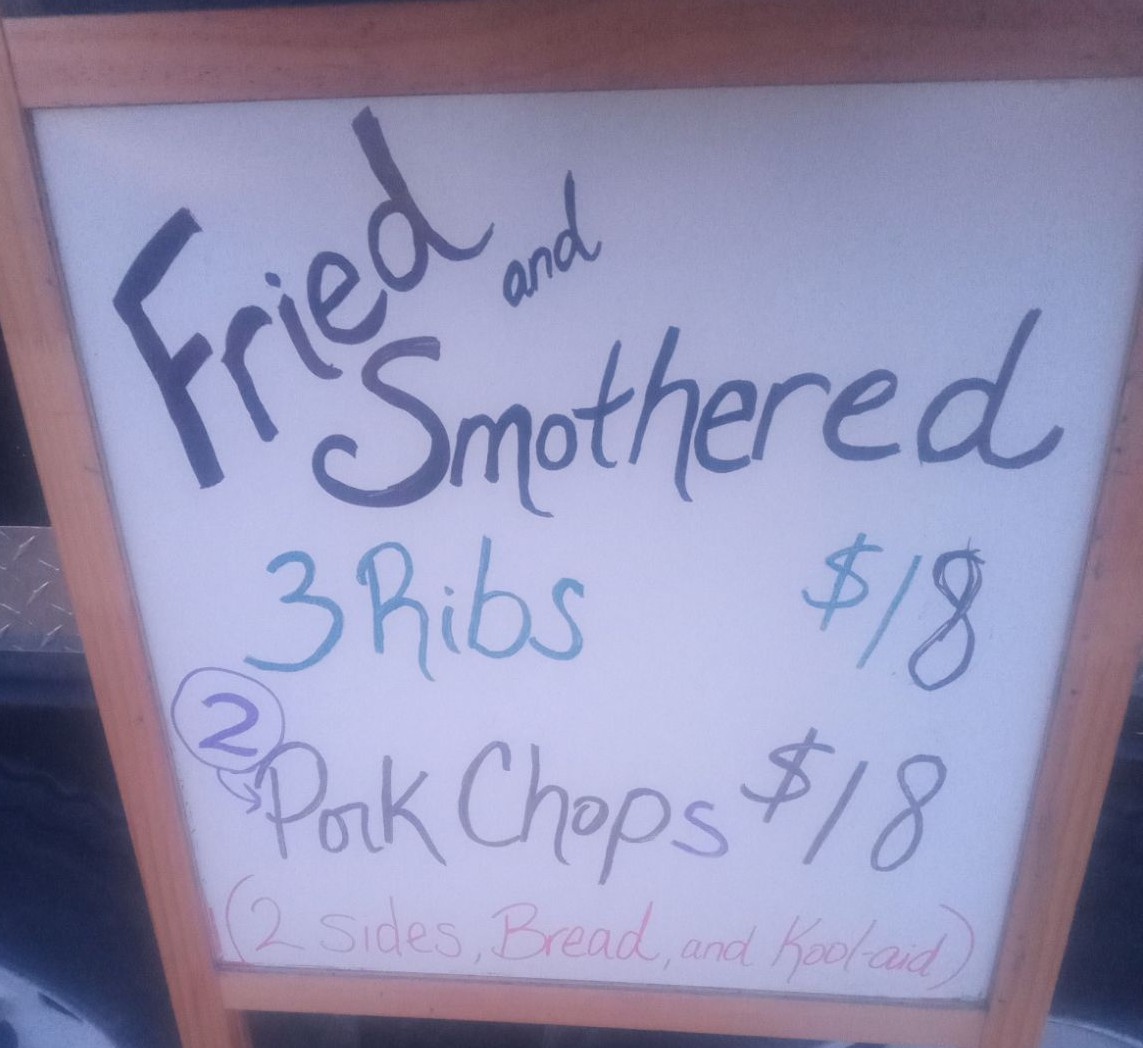 Fried and
Smothered
3 Ribs $18
2
Pork Chops $18
(2 sides, Bread, and Kool-aid)